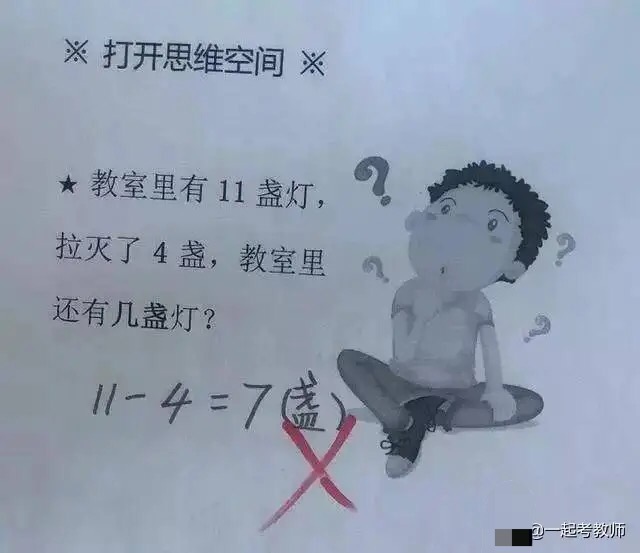 ※ 打开思维空间 ※
★ 教室里有 11 盏灯，
拉灭了 4 盏，教室里
还有几盏灯？
11-4=7(盏)
@一起考教师